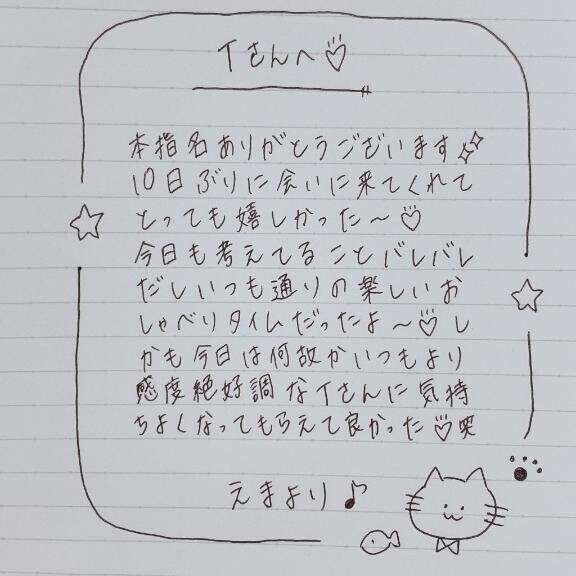 Tさんへ♡
本指名ありがとうございます
10日ぶりに会いに来てくれて
とっても嬉しかった〜♡
今日も考えてることバレバレ
だしいつも通りの楽しいお
しゃべりタイムだったよ〜♡し
かも今日は何故かいつもより
感度絶好調なTさんに気持
ちよくなってもらえて良かった♡笑
えまより♪